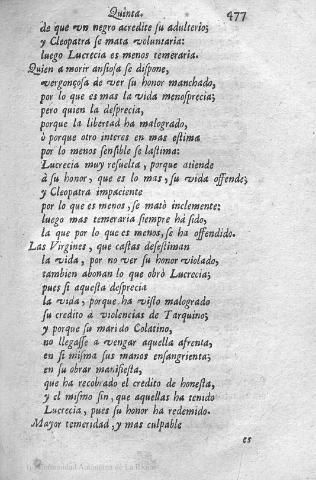 Quinta. 477
de que vn negro acredite su adulterio;
y Cleopatra se mata voluntaria:
luego Lucrecia es menos temeraria.
Quien a morir ansiosa se dispone,
vergonçosa de ver su honor manchado,
por lo que es mas la vida menosprecia;
pero quien la desprecia,
porque la libertad ha malogrado,
ò porque otro interes en mas estima
por lo menos sensible se lastima:
Lucrecia muy resuelta, porque atiende
à su honor, que es lo mas, su vida offende;
y Cleopatra impaciente
por lo que es menos, se matò inclemente:
luego mas temeraria siempre hà sido,
la que por lo que es menos, se ha offendido.
Las Virgines, que castas desestiman
la vida, por no ver su honor violado,
tambien abonan lo que obrò Lucrecia;
pues si aquesta desprecia
la vida, porque ha visto malogrado
su credito a violencias de Tarquino;
y porque su marido Colatino,
no llegasse a vengar aquella afrenta,
en si misma sus manos ensangrienta;
en su obrar manifiesta,
que ha recobrado el credito de honesta,
y el mismo fin, que aquellas ha tenido
Lucrecia, pues su honor ha redemido.
Mayor temeridad, y mas culpable
es
Universidad Autónoma de La